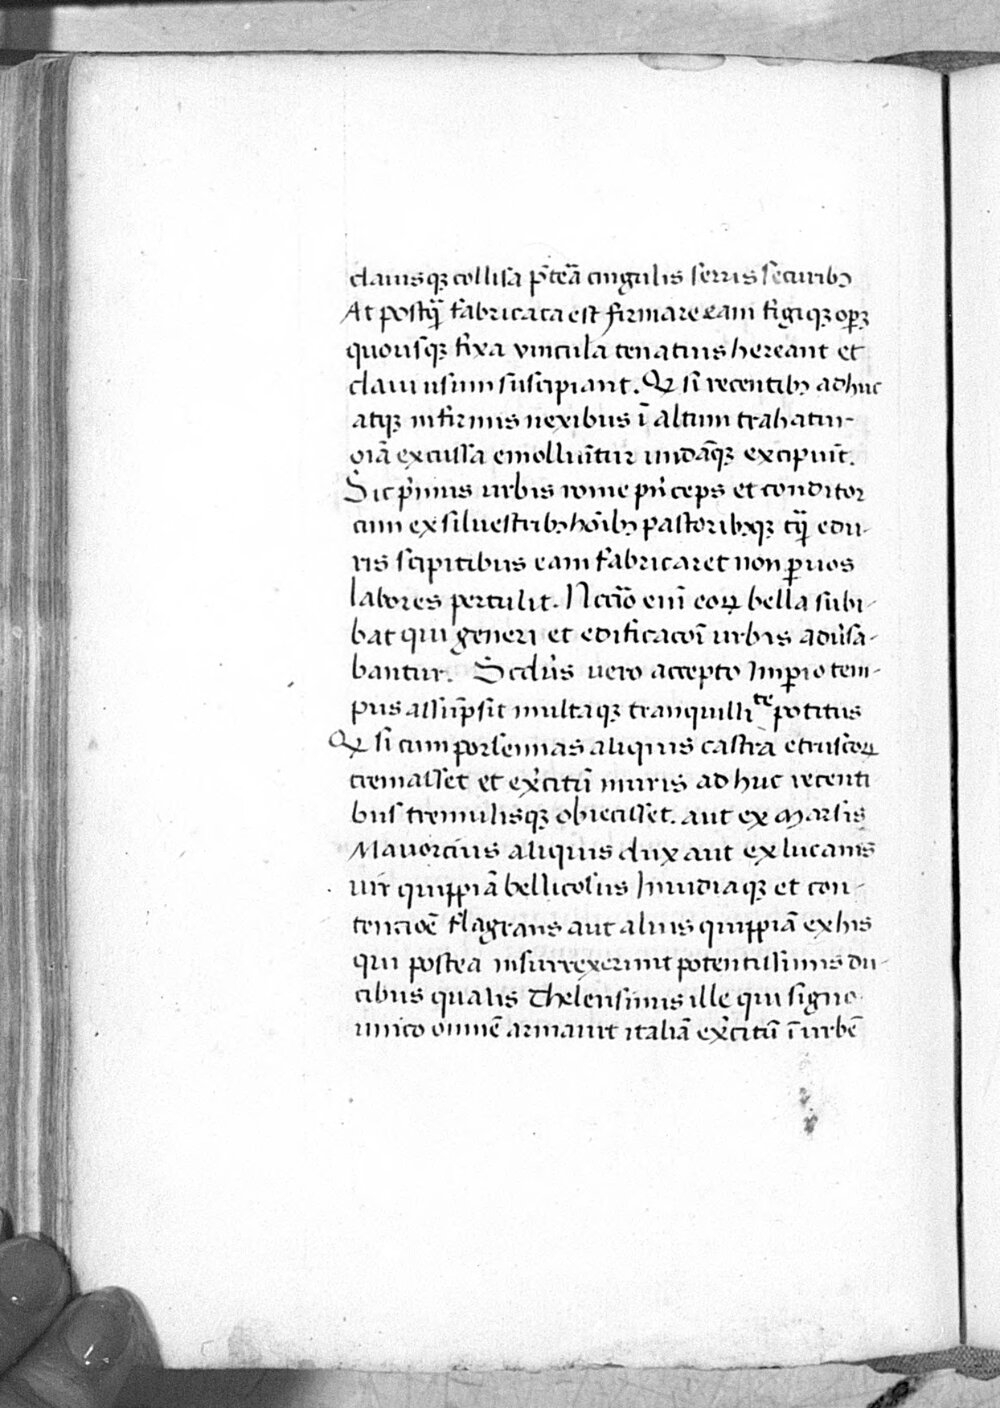 clauisqꝫ collisa p̄teā cingulis ferris securibꝫ
At postq̄ fabricata est firmare eam figiqꝫ op̲ꝫ
quousqꝫ fixa vincula tenatius hereant et
claui usum suscipiant. Qꝫ si recentibꝫ adhuc
atqꝫ infirmis nexibus ī altum trahatur
oīa excussa emolliūtur undāqꝫ excipiūt.
Sic p̄imus urbis rome p̄īceps et conditor
cum ex siluestribꝫ hoībꝫ pastoribꝫqꝫ tq̄ edu-
ris scipitibus eam fabricaret non ꝑuos
labores pertulit. Nccīo enī eoꝝ bella subi-
bat qui generi et edificacōi urbis adūsa-
bantur. Scdūs uero accepto Imꝑio tem-
pus assūpsit multaqꝫ tranquilliᵗᵉ potitus
Qꝫ si cum porsennas aliquis castra etruscoꝝ
cremasset et ex̄citū muris adhuc recenti
bus tremulisqꝫ obiecisset. aut ex Marsis
Mauorcius aliquis dux aut ex lucanis
uir quippiā bellicosus Inuidiaqꝫ et con-
tencioē flagrans aut alius quippiā ex his
qui postea insurrexerunt potentissimis du-
cibus qualis Thelensinus ille qui signo
unico omnē armauit italiā ex̄citū ī urbē